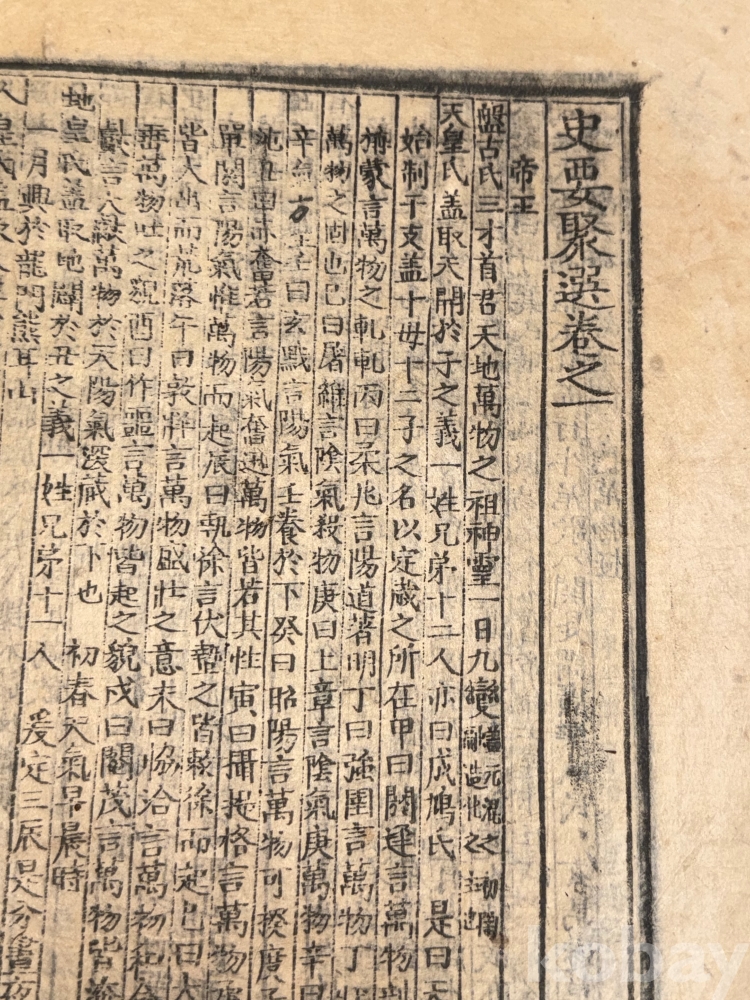 史要聚選卷之一
帝王
盤古氏三才首君天地萬物之祖神靈一日九變
天皇氏盖取天開於子之義一姓兄弟十二人亦曰成鳩氏 是曰天
始制干支盖十母十二子之名以定歲之所在甲曰閼逢言萬物剖
旃蒙言萬物之軋軋丙曰柔兆言陽道著明丁曰強圉言萬物丁壯
萬物之固也己曰屠維言陰氣殺物庚曰上章言陰氣庚萬物辛曰
辛氣方 壬曰玄黓言陽氣壬養於下癸曰昭陽言萬物可揆度子
赤奮若言陽氣奮迅萬物皆若其性寅曰攝提格言萬物
單閼言陽氣惟萬物而起辰曰執徐言伏蟄之皆敕徐而定巳曰大
皆大出而荒落午曰敦牂言萬物盛壯之意未曰協洽言萬物和合
垂萬物吐之貌酉曰作噩言萬物皆起之貌戌曰閹茂言萬物皆
獻言大 萬物於天陽氣深藏於下也 初春天氣早晨時
地皇氏盖取地闢於丑之義一姓兄弟十一人 爰定三辰是分晝夜
一月興於龍門熊耳山
人皇氏盖取人